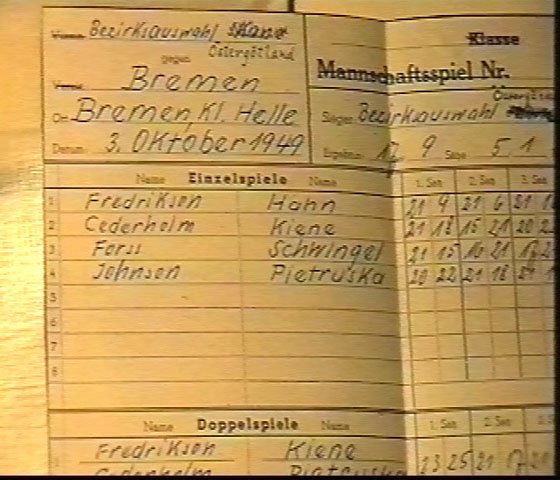 Verein Bezirksauswahl
Östergötland
gegen
Verein Bremen
Ort Bremen, Kl. Helle
Datum: 3. Oktober 1949
Klasse
Mannschaftsspiel Nr.
Sieger: Bezirksauswahl
Ergebnis: 9 Sätze 5 1
Name Einzelspiele Name 1. Satz 2. Satz 3. Satz
1 Fredrikson Hahn 21 9 21 6 21
2 Cederholm Kiene 21 18 15 21 20
3 Forss Schwingel 21 15 21
4 Johnson Pietruska 20 22 21 18
5
6
7
8
Name Doppelspiele Name 1. Satz 2. Satz
1 Fredrikson Kiene 23 25 21 17
Cederholm Pietruska